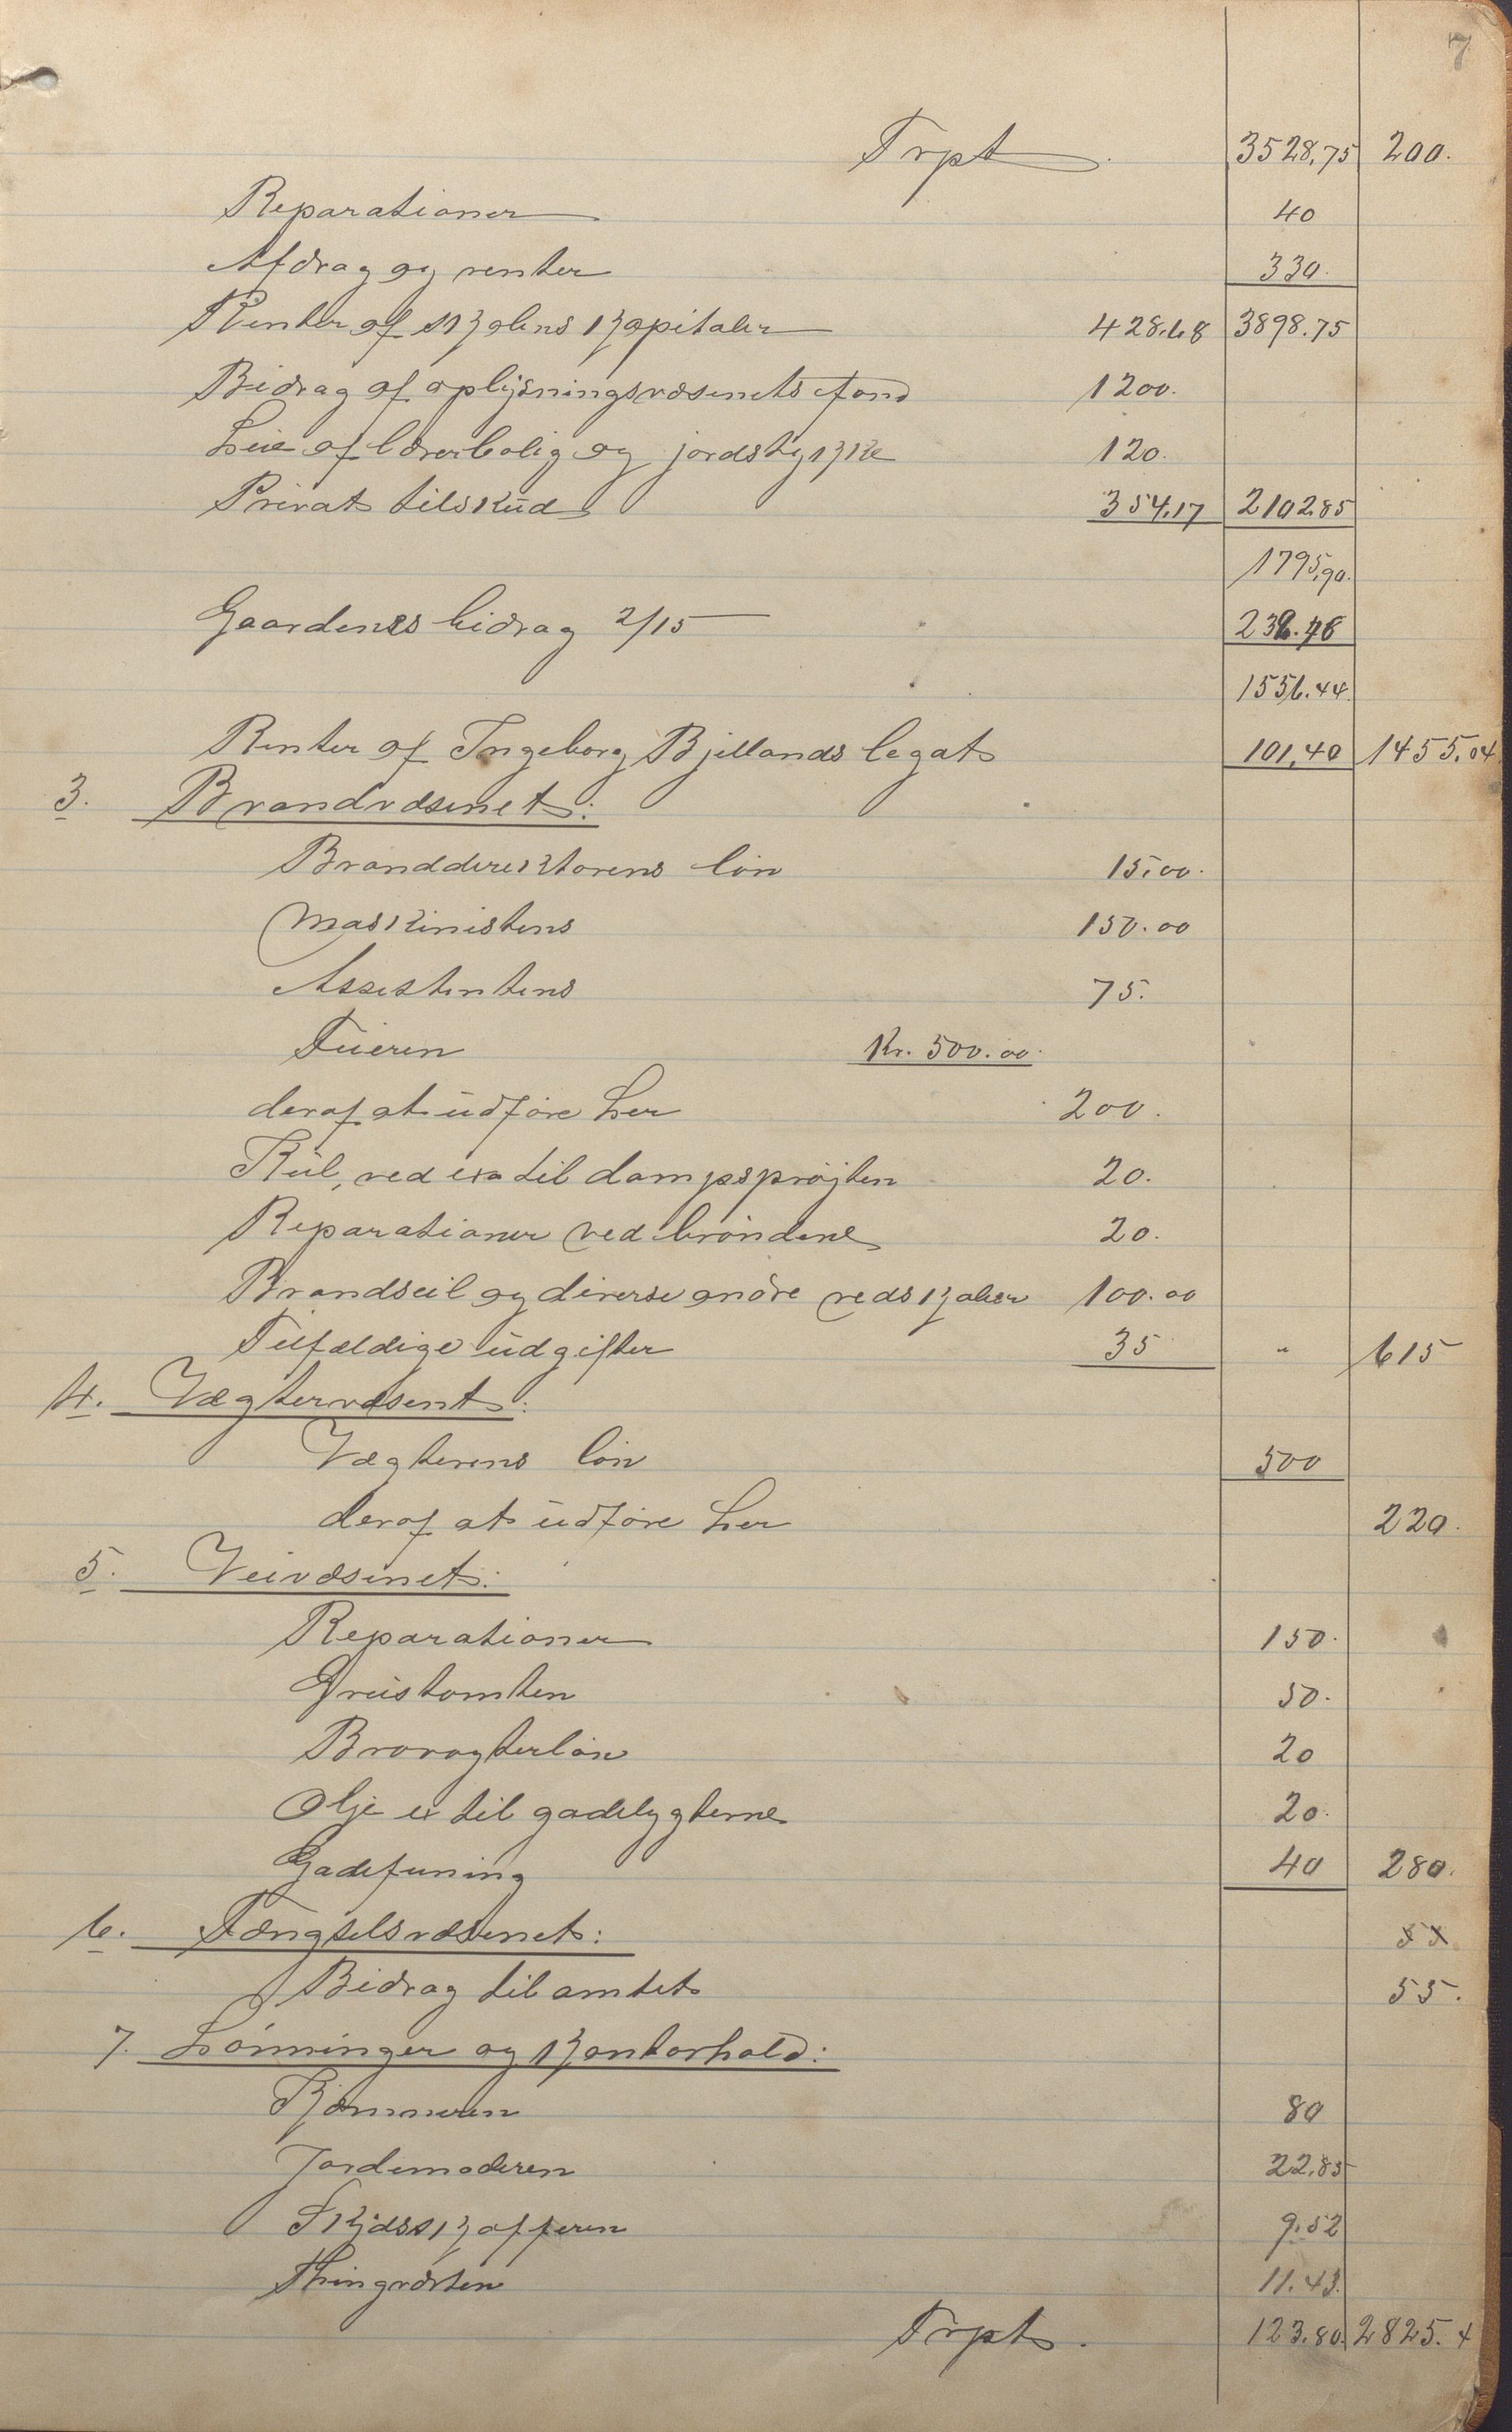 7
Trpt. 3528,75 200.
Reparationer 40
Afdrag og renter 330.
Renter af skolens kapitaler 428.68 3898.75
Bidrag af oplysningsvæsenets fond 1200.
Leie af lærerbolig og jordstykke 120.
Privat tilskud 354,17 2102.85
1795,90.
Gaardenes bidrag 2/15
1556.44.
Renter af Ingeborg Bjellands legat 101,40 1455,04
3. Brandvæsenet:
Branddirektørens løn 15,00.
Maskinistens 150.00
Assistentens 75.
Feieren Kr. 500.00.
deraf at udføre her 200.
Kul, ved til dampsprøjten 20.
Reparationer ved brøndene 20.
Brandseil og diverse andre redskaber 100.00
Tilfældige udgifter 35 " 615
4. Vægtervæsent:
Vægterens løn 500
deraf at udføre her 220.
5. Veivæsenet:
Reparationer 150.
Grustomten 50.
Brovagterløn 20
Olje til gadelygterne 20.
Gadefeining 40 280.
6. Fængselsvæsenet: 55
Bidrag til amtet 55.
7. Lønninger og kontorhold:
Kjæmneren 80
Jordemoderen 22,85
Skydsskafferen 9.52
Thingvidner 11.43.
Trpt. 123.80. 2825.4